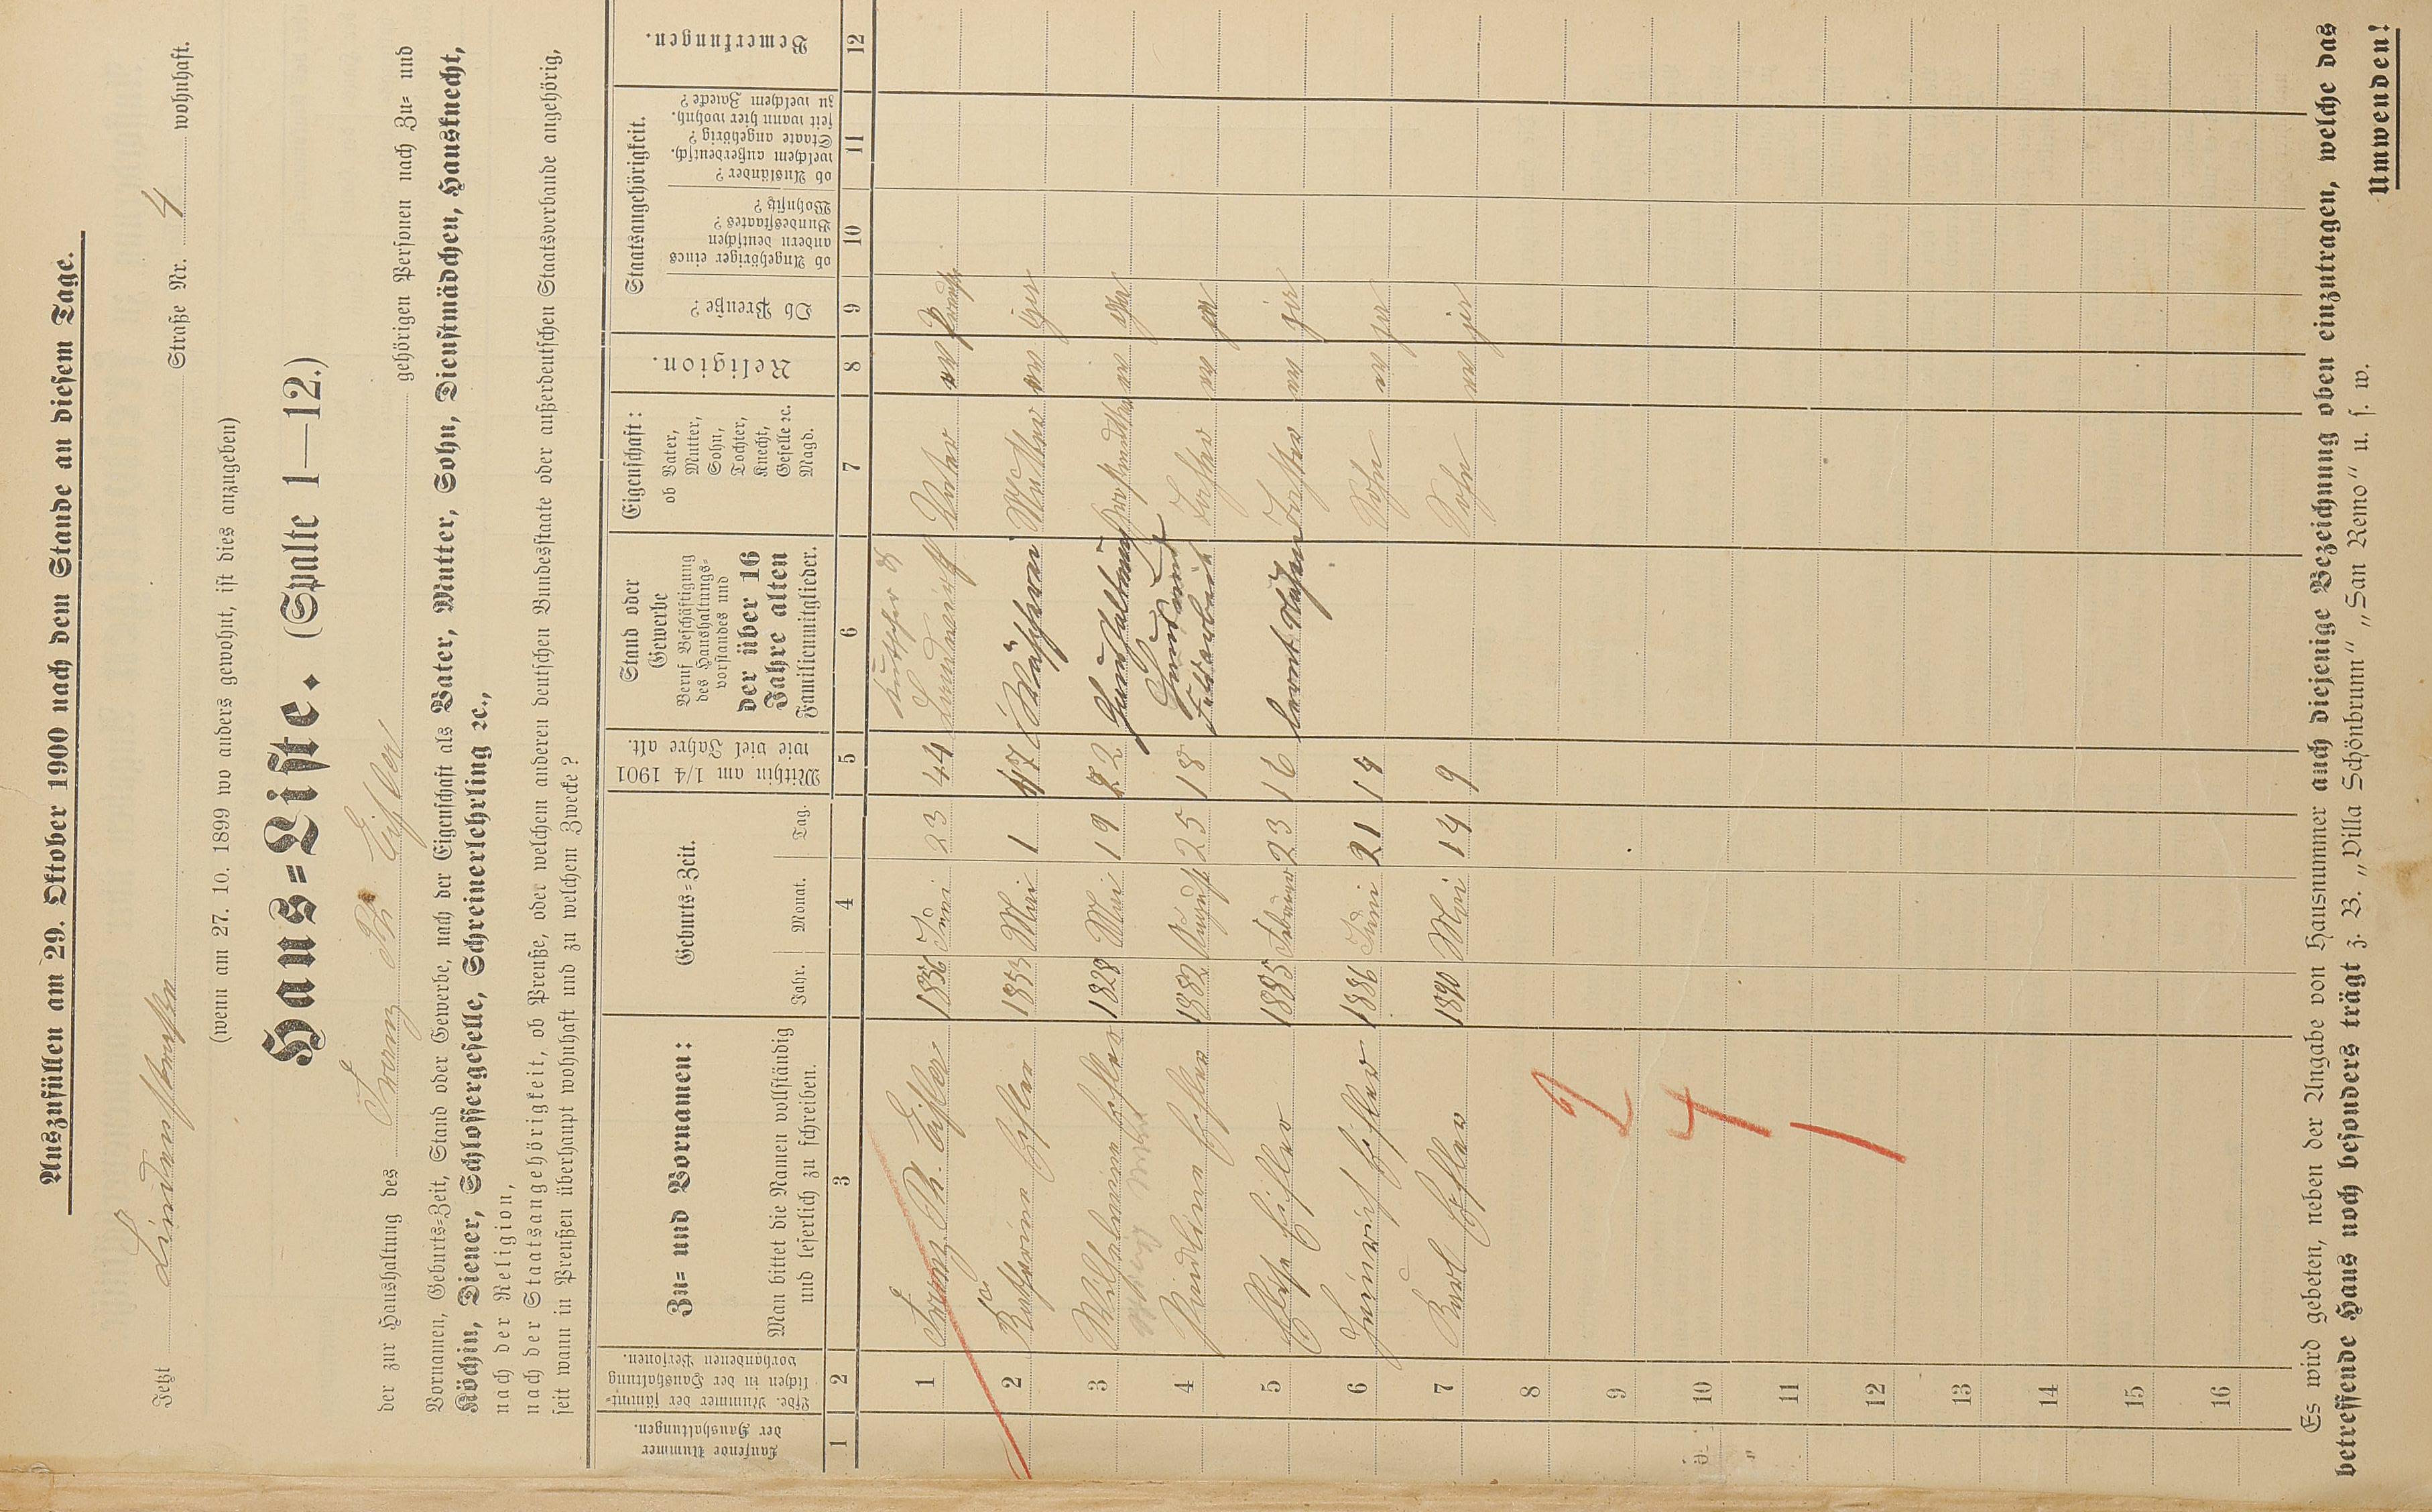 Auszufüllen am 29. Oktober 1900 nach dem Stande an diesem Tage.
Jetzt Lindenstraße Straße Nr. 4 wohnhaft.
(wenn am 27. 10. 1899 wo anders gewohnt, ist dies anzugeben)
Haus=Liste. (Spalte 1—12.)
der zur Haushaltung des Franz Ph Eißler gehörigen Personen nach Zu= und
Vornamen, Geburts=Zeit, Stand oder Gewerbe, nach der Eigenschaft als Vater, Mutter, Sohn, Dienstmädchen, Hausknecht,
Köchin, Diener, Schlossergeselle, Schreinerlehrling ꝛc.,
nach der Religion,
nach der Staatsangehörigkeit, ob Preuße, oder welchem anderen deutschen Bundesstaate oder außerdeutschen Staatsverbande angehörig,
seit wann in Preußen überhaupt wohnhaft und zu welchem Zwecke?
Laufende Nummer der Haushaltungen.
Lfde. Nummer der sämmt=lichen in der Haushaltung vorhandenen Personen.
Zu= und Vornamen:
Man bittet die Namen vollständig und leserlich zu schreiben.
Geburts=Zeit.
Jahr. Monat. Tag.
Mithin am 1/4 1901 wie viel Jahre alt.
Stand oder Gewerbe
Beruf Beschäftigung des Haushaltungs=vorstandes und der über 16 Jahre alten Familienmitglieder.
Eigenschaft:
ob Vater, Mutter, Sohn, Tochter, Knecht, Geselle ꝛc. Magd.
Religion.
Staatsangehörigkeit.
Ob Preuße?
ob Angehöriger eines andern deutschen Bundesstaates? Wohnsitz?
ob Ausländer? welchem außerdeutsch. Staate angehörig? seit wann hier wohnh. zu welchem Zwecke?
Bemerkungen.
1 2 3 4 5 6 7 8 9 10 11 12
1 Franz Ph. Eißler 1856 Juni 23 44 Landwirth Vater ev Preuße
2 Katharina Eißler 1853 Mai 1 47 Wäscherei Mutter ev
3 Eißler 1828 Mai 19 Großmutter ev
4 Paulina Eißler 1882 August 25 18 Feldarbeit Tochter ev
5 Elise Eißler 1885 Februar 23 16 lernt Nähen Tochter ev
6 Heinrich Eißler 1886 Juni 21 14 Sohn ev
7 Karl Eißler 1890 Mai 14 9 Sohn ev
8
9
10
11
12
13
14
15
16
2
4
1
Es wird gebeten, neben der Angabe von Hausnummer auch diejenige Bezeichnung oben einzutragen, welche das
betreffende Haus noch besonders trägt z. B. „Villa Schönbrunn" „San Remo" u. s. w.
Umwenden!